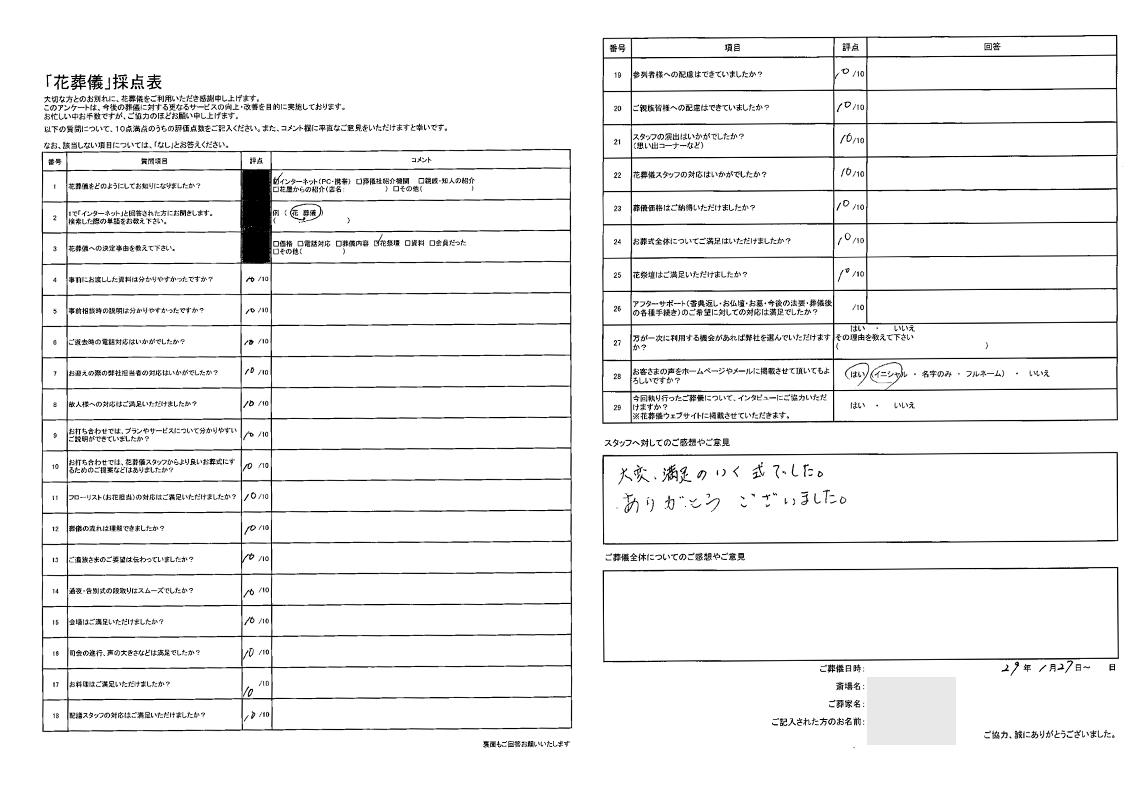 「花葬儀」採点表
大切な方とのお別れに、花葬儀をご利用いただき感謝申し上げます。
このアンケートは、今後の葬儀に対する更なるサービスの向上・改善を目的に実施しております。
お忙しい中お手数ですが、ご協力のほどお願い申し上げます。
以下の質問について、10点満点のうちの評価点数をご記入ください。また、コメント欄に率直なご意見をいただけますと幸いです。
なお、該当しない項目については、「なし」とお答えください。
番号 質問項目 評点 コメント
1 花葬儀をどのようにしてお知りになりましたか? ☑インターネット(PC・携帯) □葬儀社紹介機関 □親戚・知人の紹介
□花屋からの紹介(店名: ) □その他( )
2 1で「インターネット」と回答された方にお聞きします。 例 ( 花 葬儀 )
検索した際の単語をお教え下さい。 ( )
3 花葬儀への決定事由を教えて下さい。 □価格 □電話対応 □葬儀内容 ☑花祭壇 □資料 □会員だった
□その他( )
4 事前にお渡しした資料は分かりやすかったですか? 10 /10
5 事前相談時の説明は分かりやすかったですか? 10 /10
6 ご逝去時の電話対応はいかがでしたか? 10 /10
7 お迎えの際の弊社担当者の対応はいかがでしたか? 10 /10
8 故人様への対応はご満足いただけましたか? 10 /10
9 お打ち合わせでは、プランやサービスについて分かりやすい
ご説明ができていましたか? 10 /10
10 お打ち合わせでは、花葬儀スタッフからより良いお葬式にす
るためのご提案などはありましたか? 10 /10
11 フローリスト(お花担当)の対応はご満足いただけましたか? 10 /10
12 葬儀の流れは理解できましたか? 10 /10
13 ご遺族さまのご要望は伝わっていましたか? 10 /10
14 通夜・告別式の段取りはスムーズでしたか? 10 /10
15 会場はご満足いただけましたか? 10 /10
16 司会の進行、声の大きさなどは満足でしたか? 10 /10
17 お料理はご満足いただけましたか? 10 /10
18 配膳スタッフの対応はご満足いただけましたか? 10 /10
裏面もご回答お願いいたします
番号 項目 評点 回答
19 参列者様への配慮はできていましたか? 10 /10
20 ご親族皆様への配慮はできていましたか? 10 /10
21 スタッフの演出はいかがでしたか?
(思い出コーナーなど) 10 /10
22 花葬儀スタッフの対応はいかがでしたか? 10 /10
23 葬儀価格はご納得いただけましたか? 10 /10
24 お葬式全体についてご満足はいただけましたか? 10 /10
25 花祭壇はご満足いただけましたか? 10 /10
26 アフターサポート(香典返し・お仏壇・お墓・今後の法要・葬儀後
の各種手続き)のご希望に対しての対応は満足でしたか? /10
27 万が一次に利用する機会があれば弊社を選んでいただけます
か? はい ・ いいえ
その理由を教えて下さい
( )
28 お客さまの声をホームページやメールに掲載させて頂いてもよ
ろしいですか? はい (イニシャル ・ 名字のみ ・ フルネーム) ・ いいえ
29 今回執り行ったご葬儀について、インタビューにご協力いただ
けますか?
※花葬儀ウェブサイトに掲載させていただきます。 はい ・ いいえ
スタッフへ対してのご感想やご意見
大変、満足のいく式でした。
ありがとうございました。
ご葬儀全体についてのご感想やご意見
ご葬儀日時: 29年 1月27日〜 日
斎場名:
ご葬家名:
ご記入された方のお名前:
ご協力、誠にありがとうございました。